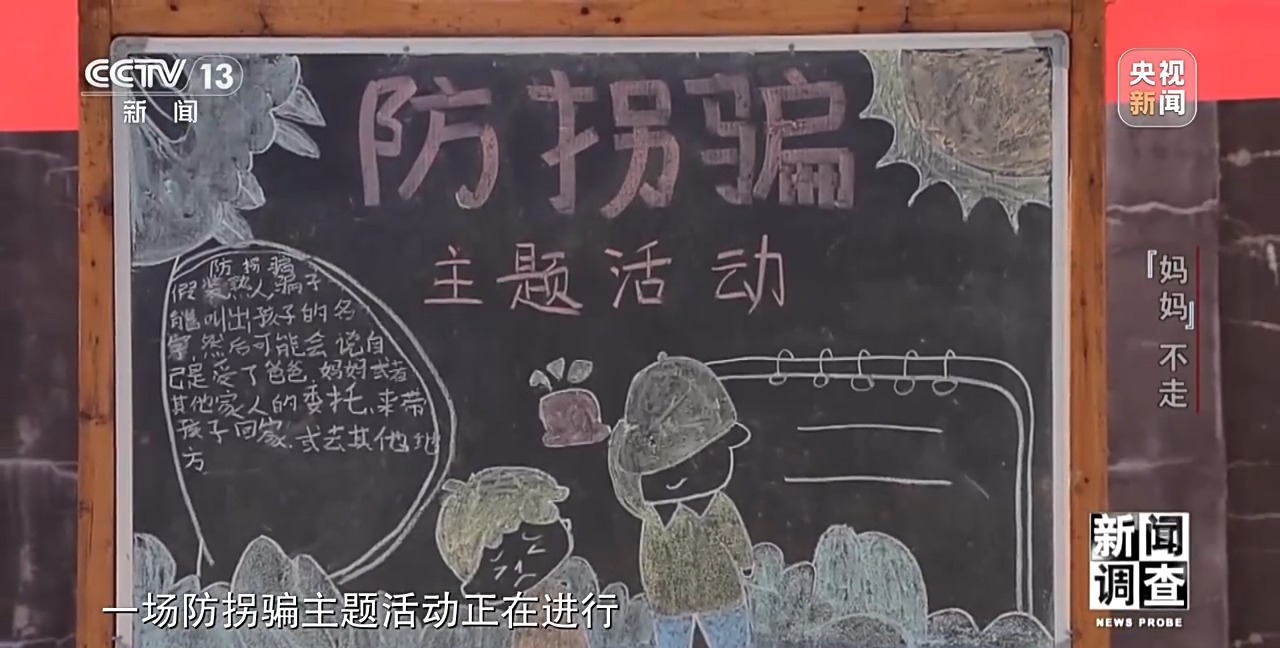 CCTV 13
新闻
央视
新闻
防拐骗
主题活动
防拐骗
假装熟人骗子
能叫出孩子的名
字,然后可能会说自
己是受了爸爸、妈妈或者
其他家人的委托,来带
孩子回家,或去其他地
方
『妈妈』不走
一场防拐骗主题活动正在进行
新闻
调查
NEWS PROBE